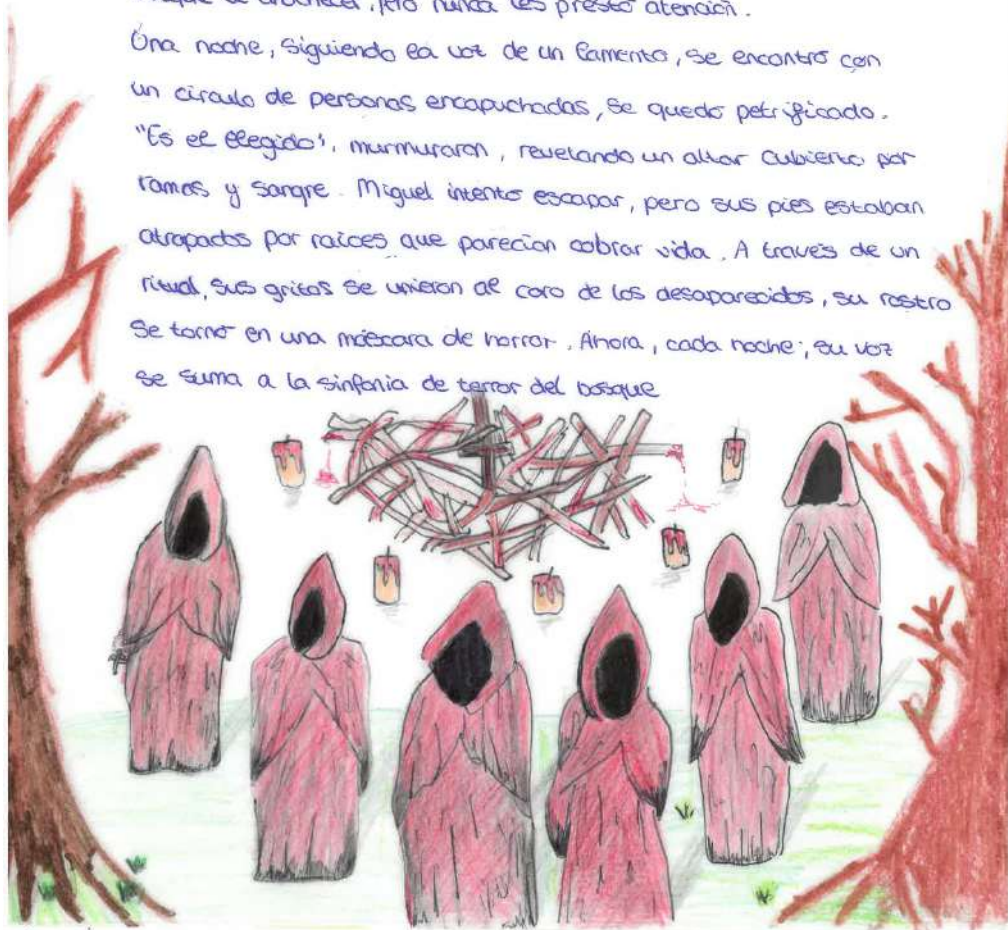 al anochecer, pero nunca les prestó atención.
Una noche, siguiendo la voz de un lamento, se encontró con
un circulo de personas encapuchadas, se quedo petrificado.
"Es el elegido", murmuraron, revelando un altar cubierto por
ramas y sangre. Miguel intento escapar, pero sus pies estaban
atrapados por raíces que parecian cobrar vida. A través de un
ritual, sus gritos se unieron al coro de los desaparecidos, su rostro
se tornó en una máscara de horror. Ahora, cada noche, su voz
se suma a la sinfonia de terror del bosque